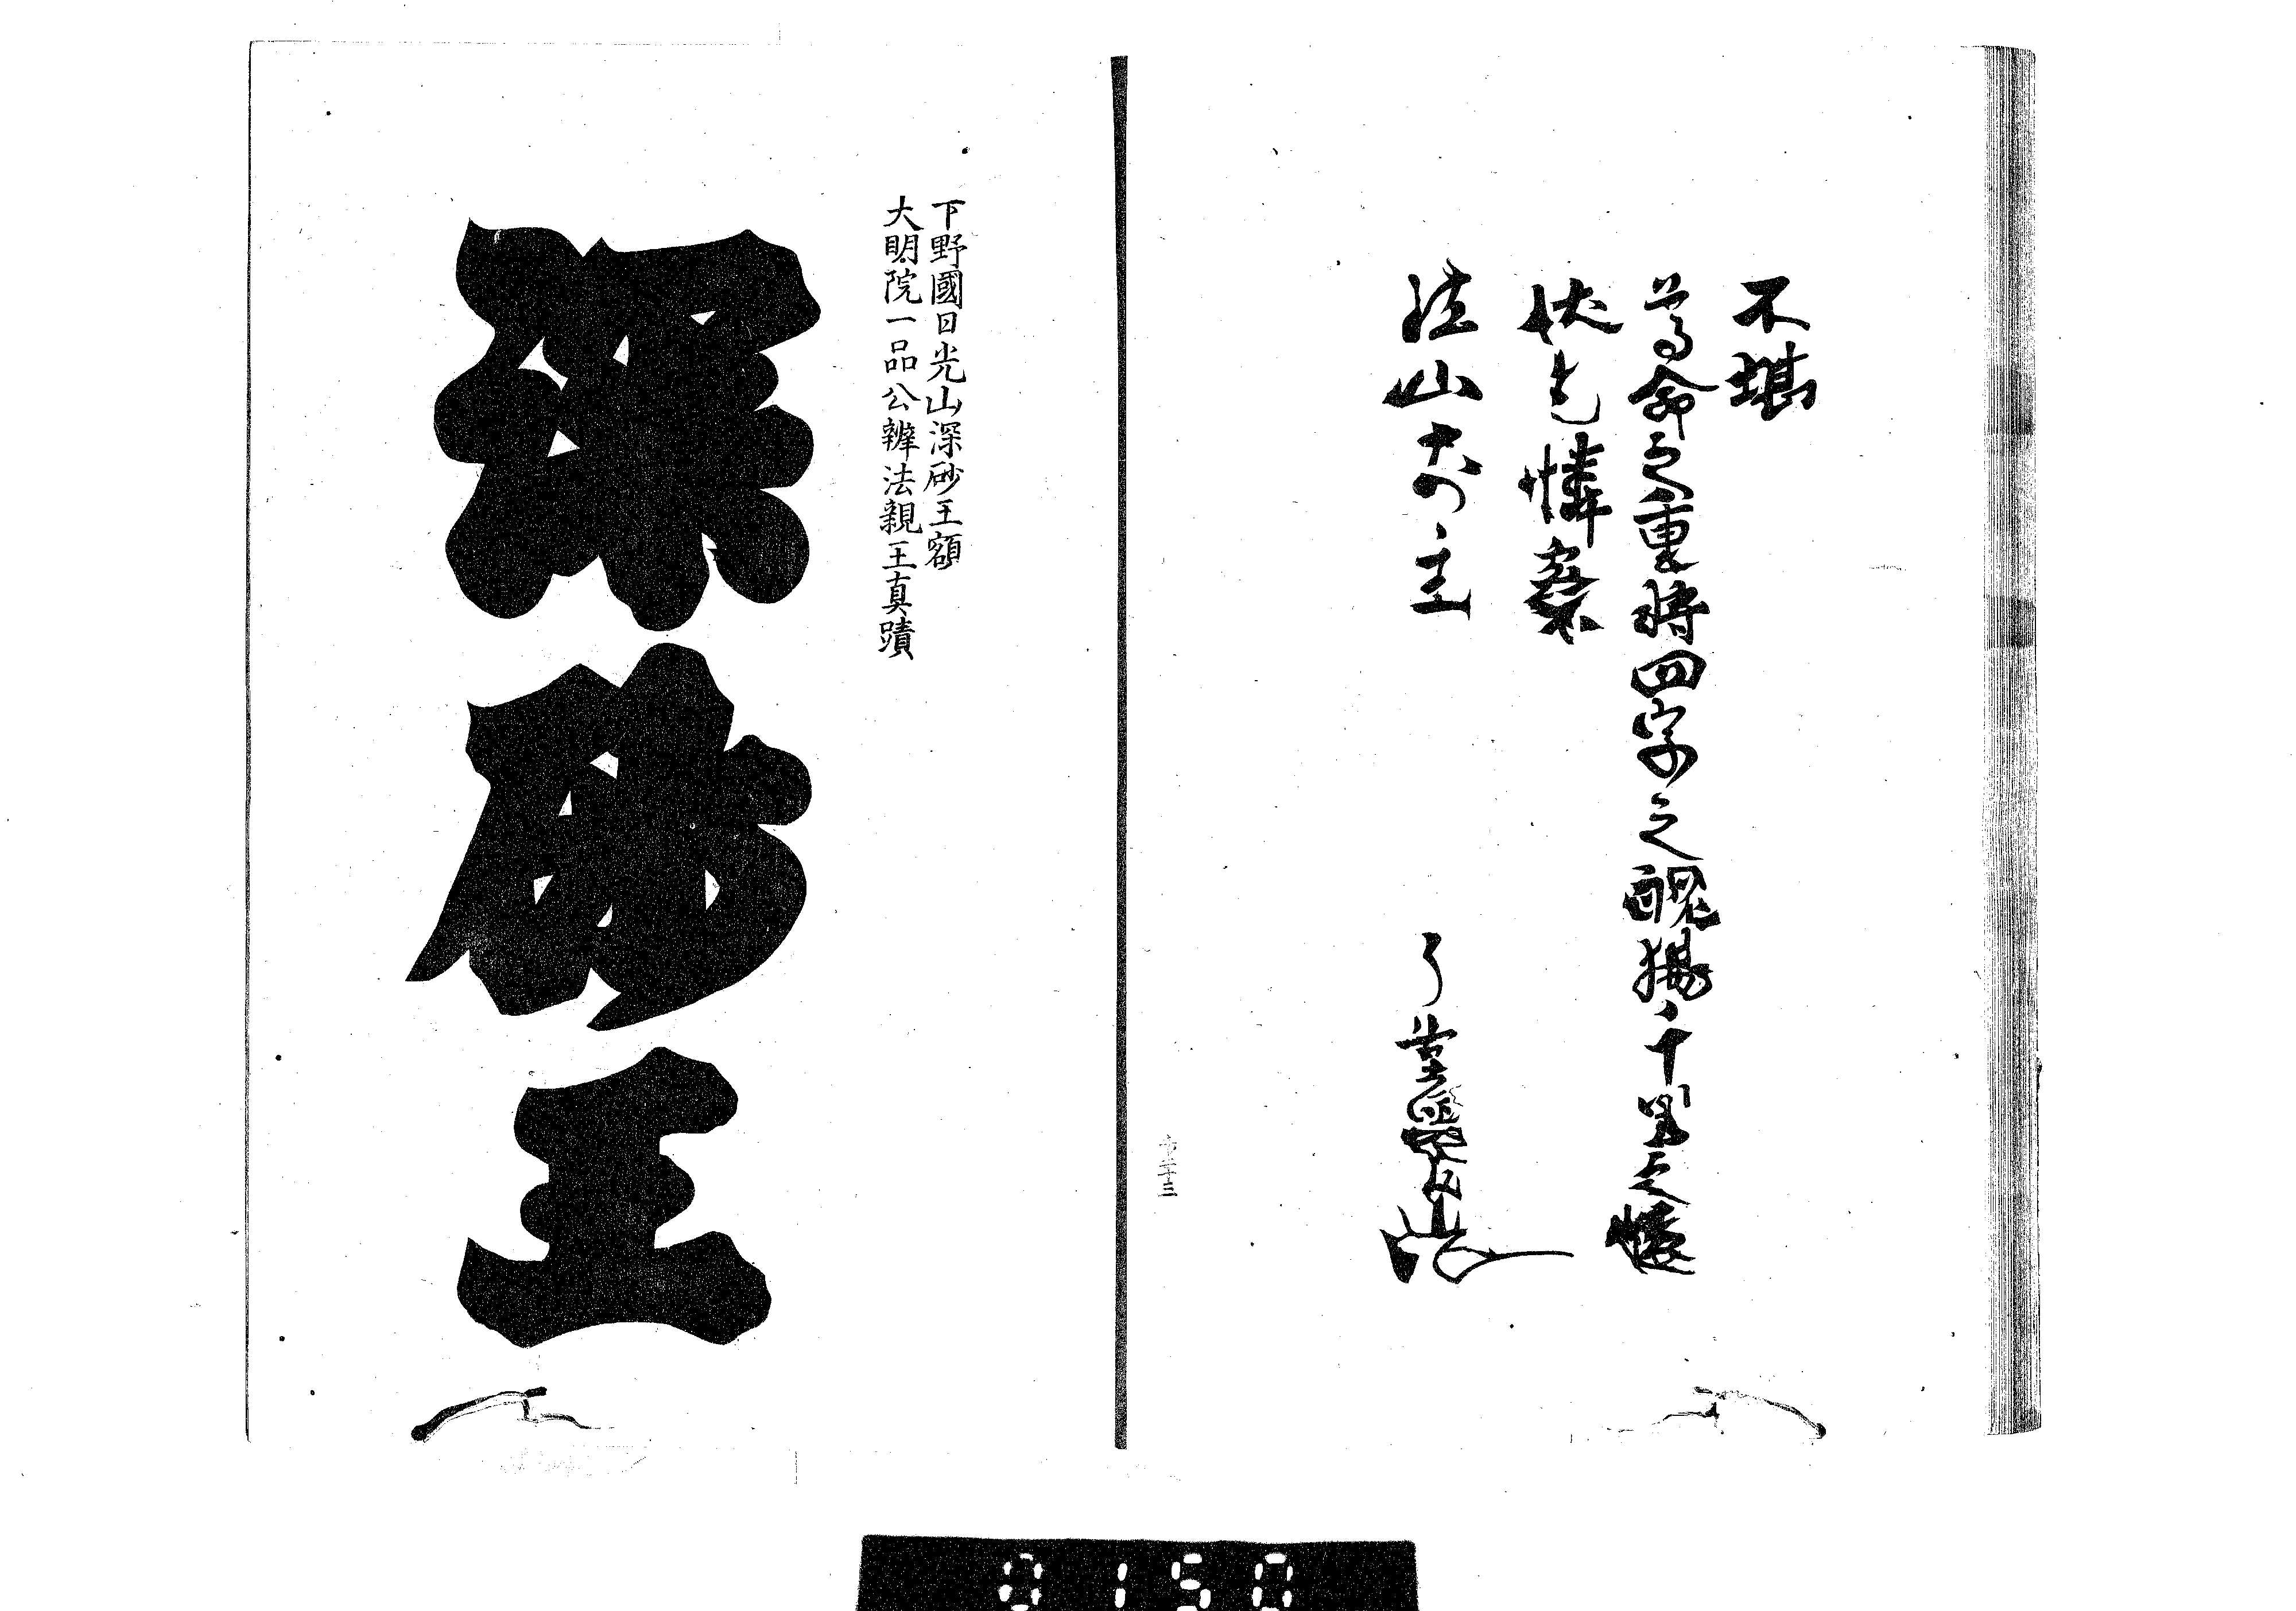 不堪
尊命之重將四字之醜揚千里之
伏乞憐察
法山大和主
了堂
六二十三
下野國日光山深砂王額
大明院一品公辨法親王真蹟
深砂王
0150